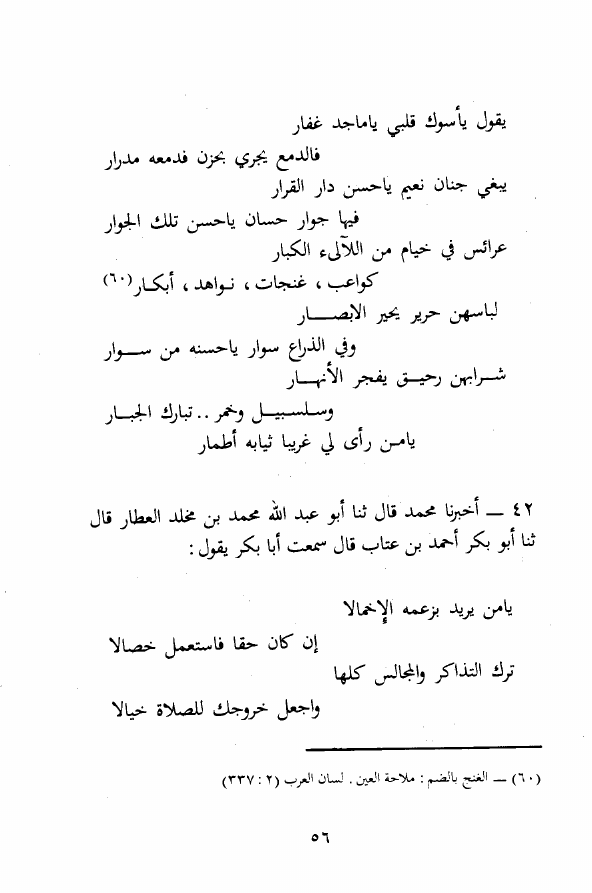 يقول يأسوك قلبي ياماجد غفار
فالدمع يجري بحزن فدمعه مدرار
يبغي جنان نعيم ياحسن دار القرار
فيها جوار حسان ياحسن تلك الجوار
عرائس في خيام من اللآلىء الكبار
كواعب ، غنجات ، نواهد ، أبكار(٦٠)
لباسهن حرير يحير الابصار
وفي الذراع سوار ياحسنه من سوار
شرابهن رحيق يفجر الأنهار
وسلسبيل وخمر .. تبارك الجبار
يامن رأى لي غريبا ثيابه أطمار
٤٢ ـ أخبرنا محمد قال ثنا أبو عبد الله محمد بن مخلد العطار قال
ثنا أبو بكر أحمد بن عتاب قال سمعت أبا بكر يقول :
يامن يريد بزعمه الإخمالا
إن كان حقا فاستعمل خصالا
ترك التذاكر والمجالس كلها
واجعل خروجك للصلاة خيالا
(٦٠) ـ الغنج بالضم : ملاحة العين . لسان العرب (٢ : ٣٣٧)
٥٦